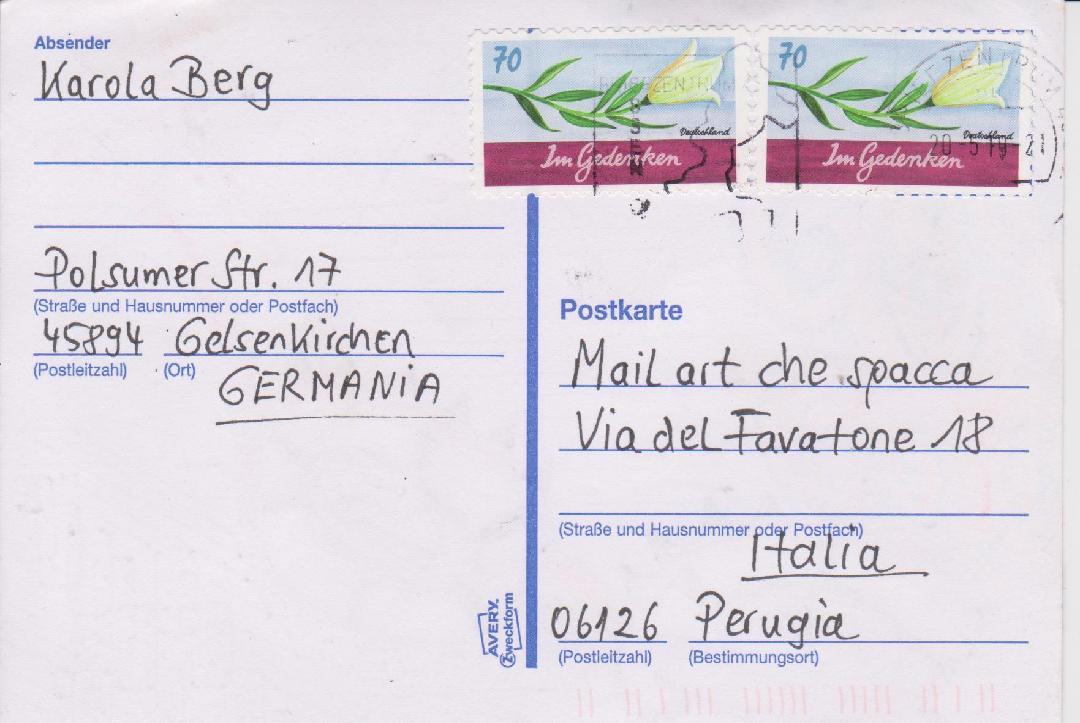 Absender
Karola Berg
Polsumer Str. 17
(Straße und Hausnummer oder Postfach)
45894 Gelsenkirchen
(Postleitzahl) (Ort)
GERMANIA
70
Deutschland
Im Gedenken
70
Deutschland
Im Gedenken
BRIEFZENTRUM
ESSEN
20-5 19-21
Postkarte
Mail art che spacca
Via del Favatone 18
(Straße und Hausnummer oder Postfach)
Italia
06126 Perugia
(Postleitzahl) (Bestimmungsort)
AVERY
Zweckform